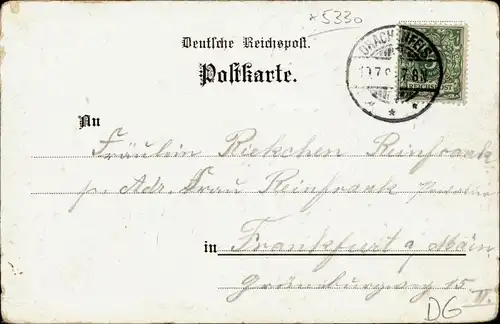 *5330
Deutsche Reichspost.
Postkarte.
DRACHENFELS
7-8N
REICHSPOST
An
Fräulein Riekchen Reinfrank
p. Adr. Frau Reinfrank
in Frankfurt a/ Main
Grüneburgweg 15 II.
DG